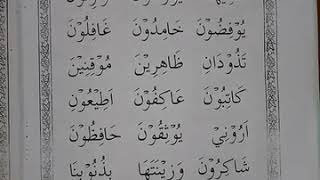 يُوْفِضُوْنَ خَامِدُوْنَ غَافِلُوْنَ
تَذُوْدَانِ ظَاهِرِيْنَ مُوْقِنِيْنَ
كَاتِبُوْنَ عَاكِفُوْنَ اَطِيْعُوْنِ
اَرُوْنِيْ يُوْثِقُوْنَ حَافِظُوْنَ
شَاكِرُوْنَ وَزِيْنَتَهَا بِذُنُوْبِنَا